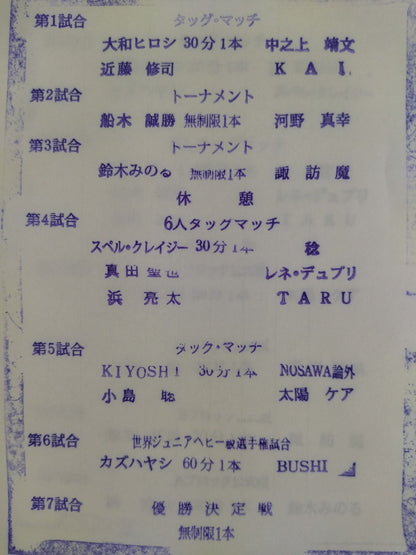 第1試合 タッグ・マッチ
大和ヒロシ 30分1本 中之上 靖文
近藤 修司 KAI
第2試合 トーナメント
船木 誠勝 無制限1本 河野 真幸
第3試合 トーナメント
鈴木みのる 無制限1本 諏訪魔
休憩
第4試合 6人タッグマッチ
スペル・クレイジー 30分1本 稔
真田聖也 レネ・デュプリ
浜 亮太 TARU
第5試合 タッグ・マッチ
KIYOSHI 30分1本 NOSAWA論外
小島 聡 太陽 ケア
第6試合 世界ジュニアヘビー級選手権試合
カズハヤシ 60分1本 BUSHI
第7試合 優勝決定戦
無制限1本